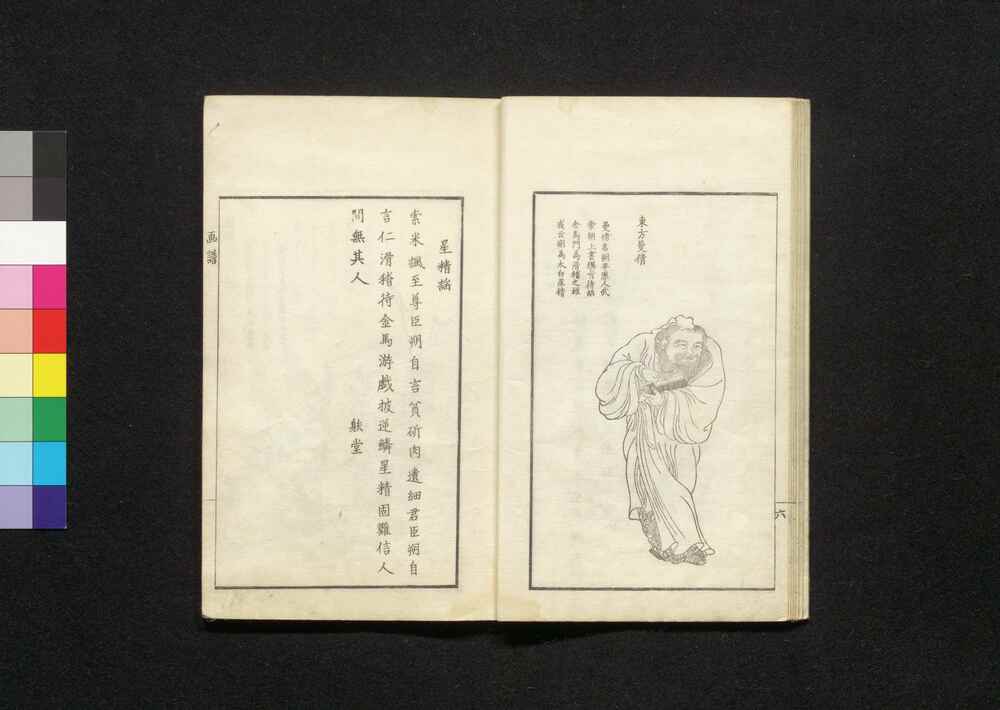 東方曼倩
曼倩名朔平原人武
帝朝上書撰言待詔
金馬門為滑稽之雄
或云朔為太白星精
六
星精謡
索米諷至尊臣朔自言貧斫肉遺細君臣朔自
言仁滑稽待金馬游戯披逆鱗星精固難信人
間無其人
堂
画譜